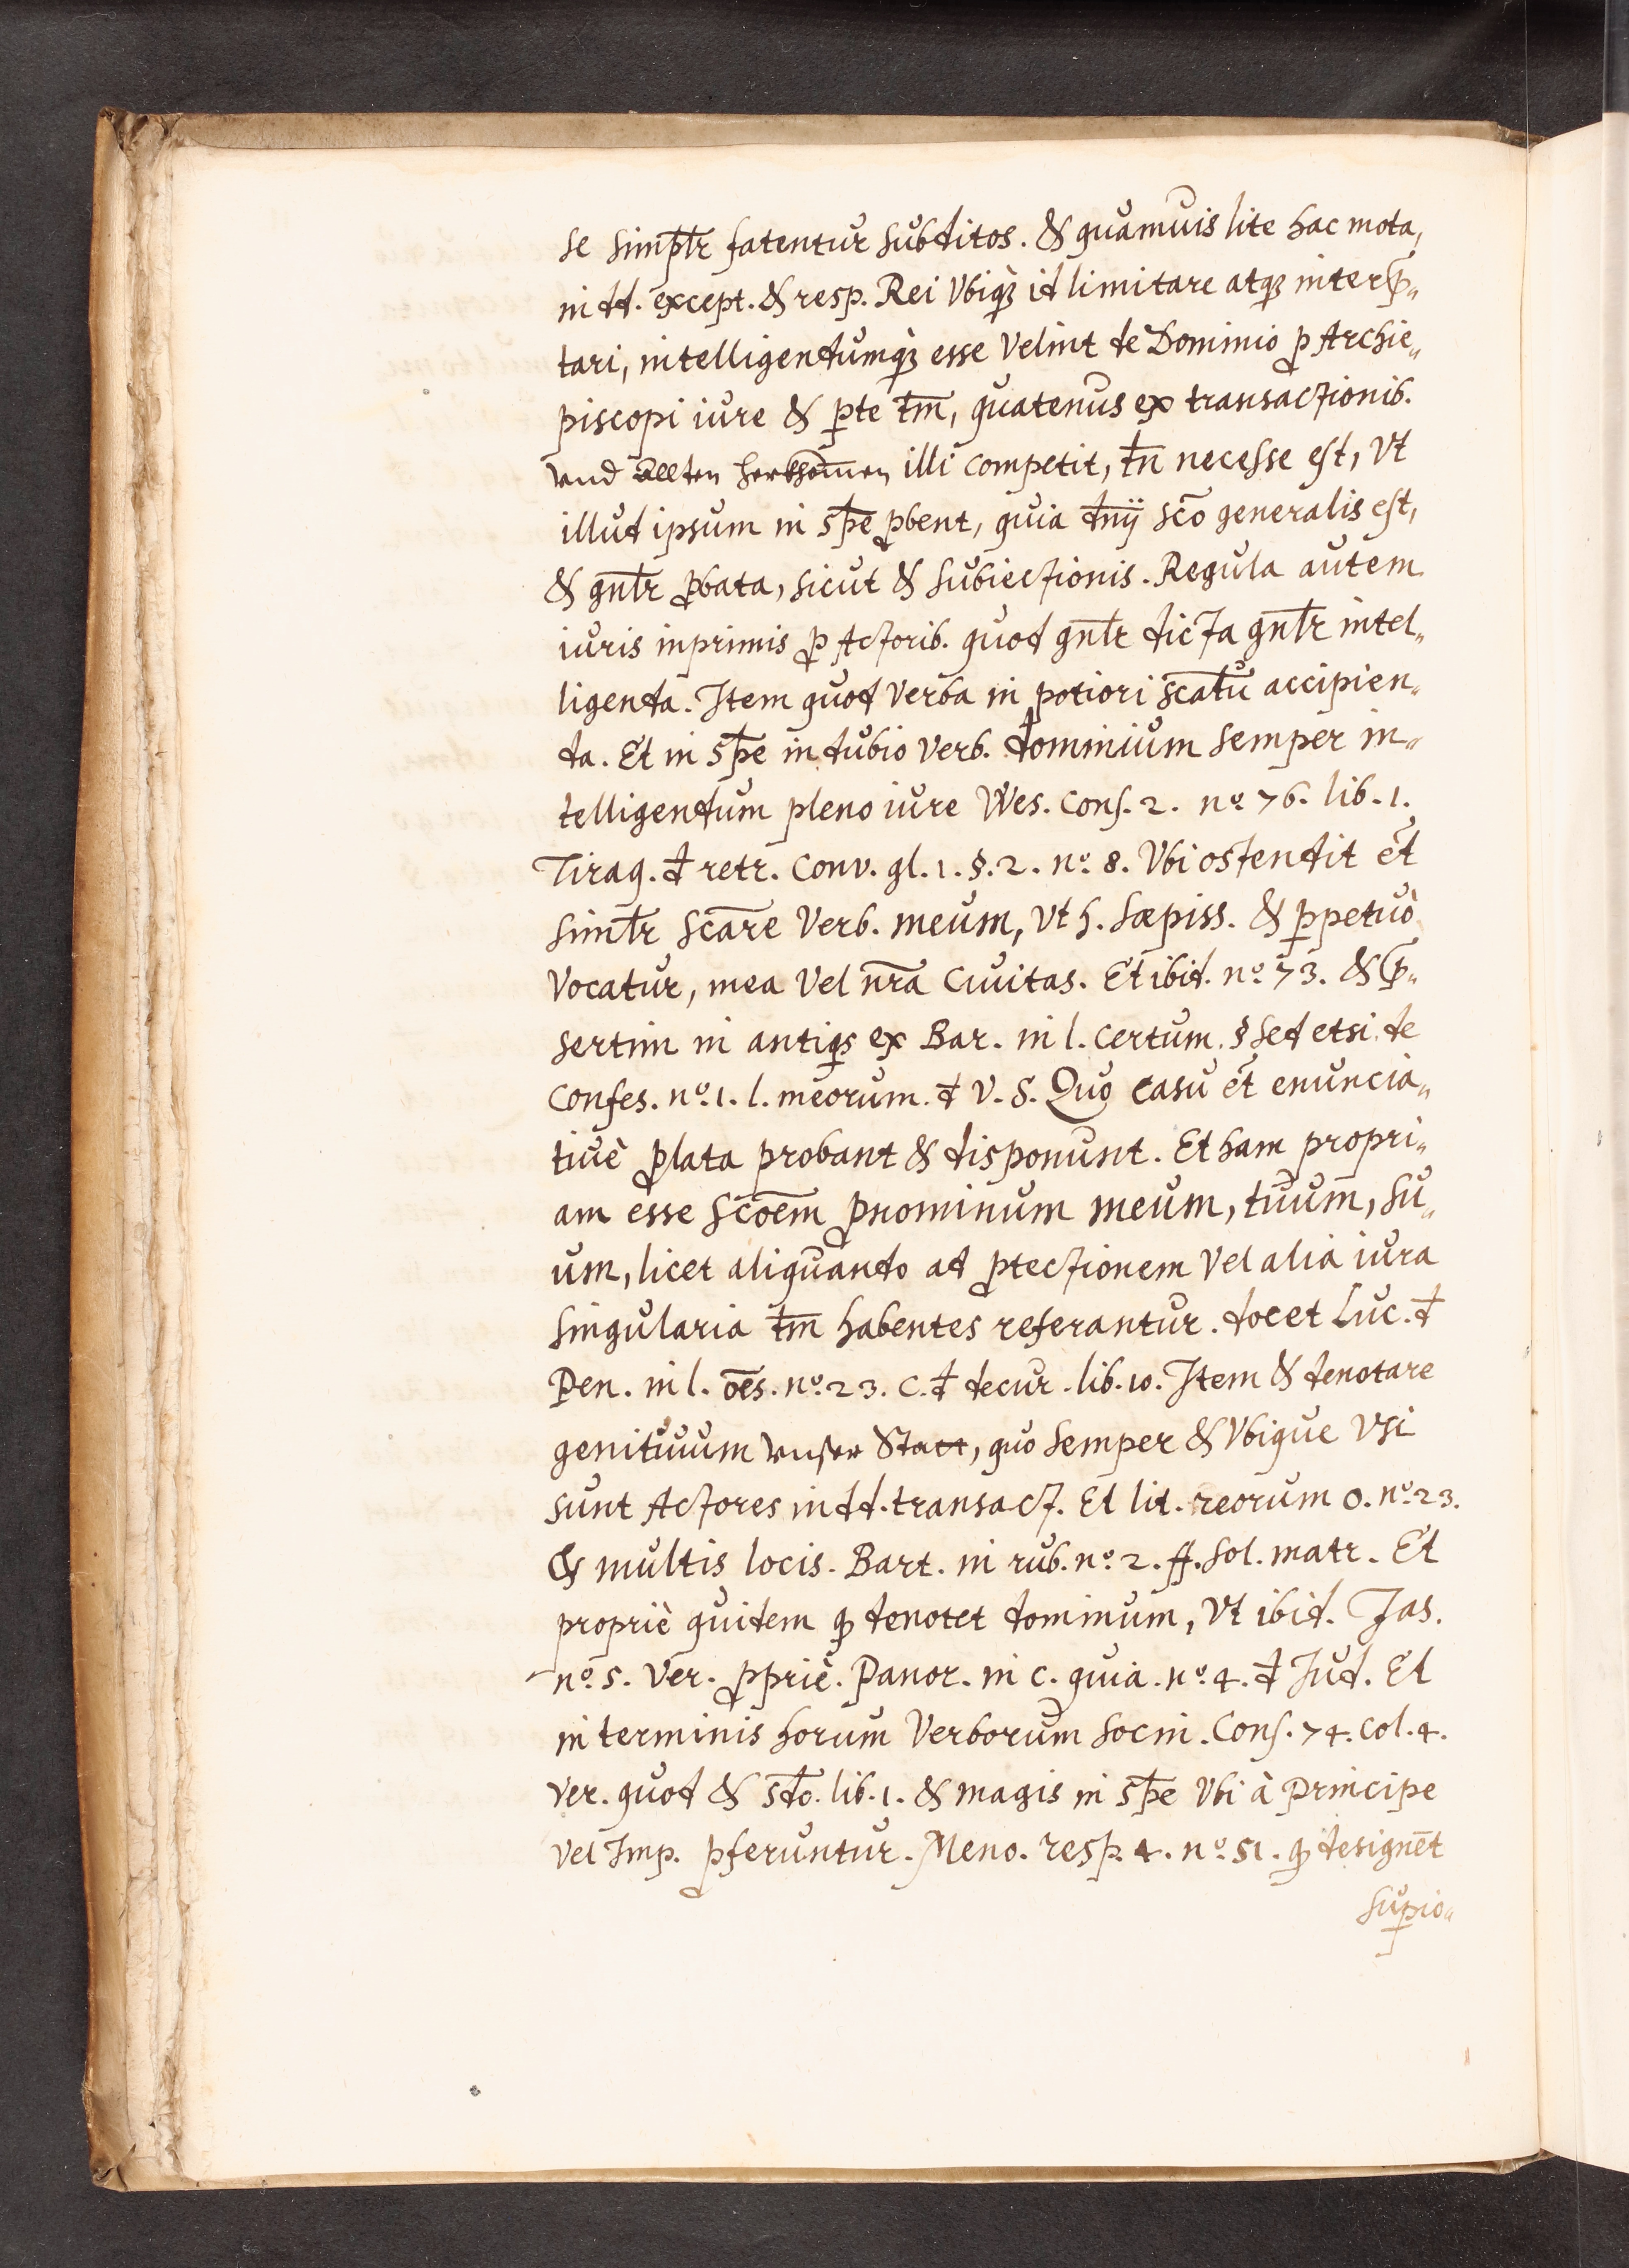 se simpłr fatentur subditos. & quamuis lite hac mota,
in dd. except. & resp. Rei Vbiqꝫ id limitare atqꝫ interp̃„
tari, intelligendumqꝫ esse Velint de Dominio ꝓ Archie„
piscopi iure & ꝑte tm̄, quatenus ex transactionib.
vnd Allten herkhom̄en illi competit, tn̄ necesse est, Vt
illud ipsum in spē̄ ꝓbent, quia dn̄ij scō generalis est,
& gn̄łr ꝓbata, sicut & subiectionis. Regula autem
iuris inprimis ꝓ Actorib. quod gn̄łr dicta gn̄łr intel„
ligenda. Item quod Verba in potiori scātu accipien„
da. Et in spē in dubio verb. dominium semper in„
telligendum pleno iure Wes. Cons. 2. nº 76. lib. 1.
Tiraq. đ retr. Conv. gl. 1. §. 2. nº. 8. Vbi ostendit ēt
simłr scāre Verb. meum, Vt h. sæpiss. & ꝑpetuò
Vocatur, mea Vel nr̄a Ciuitas. Et ibid. nº 73. & p̃„
sertim in antiqs ex Bar. in l. certum. § sed etsi. de
Confes. nº. 1. l. meorum. đ V. S. Quo casu ēt enuncia„
tiuè ꝓlata probant & disponunt. Et hanc propri„
am esse scōem ꝓnominum meum, tuum, su„
um, licet aliquando ad ꝓtectionem Vel alia iura
singularia tm̄ habentes referantur. docet Luc. đ
Pen. in l. ōes. nº. 23. C. đ decur. lib. 10. Item & denotare
genitiuum vnser Statt, quo semper & Vbique Vsi
sunt Actores in dd. transact. Et lit. reorum O. nº. 23.
& multis locis. Bart. in rub. nº. 2. ff. sol. matr. Et
propriè quidem ꝙ denotet dominum, Vt ibid. Jas.
nº 5. Ver. ꝓpriè. Panor. in c. quia. nº. 4. đ Jud. Et
in terminis horum Verborum Socin. Cons. 74. col. 4.
ver. quod & sđo. lib. 1. & magis in spē Vbi à Principe
Vel Imp. ꝓferuntur. Meno. resp. 4. nº. 51. ꝙ designēt
suꝑio„